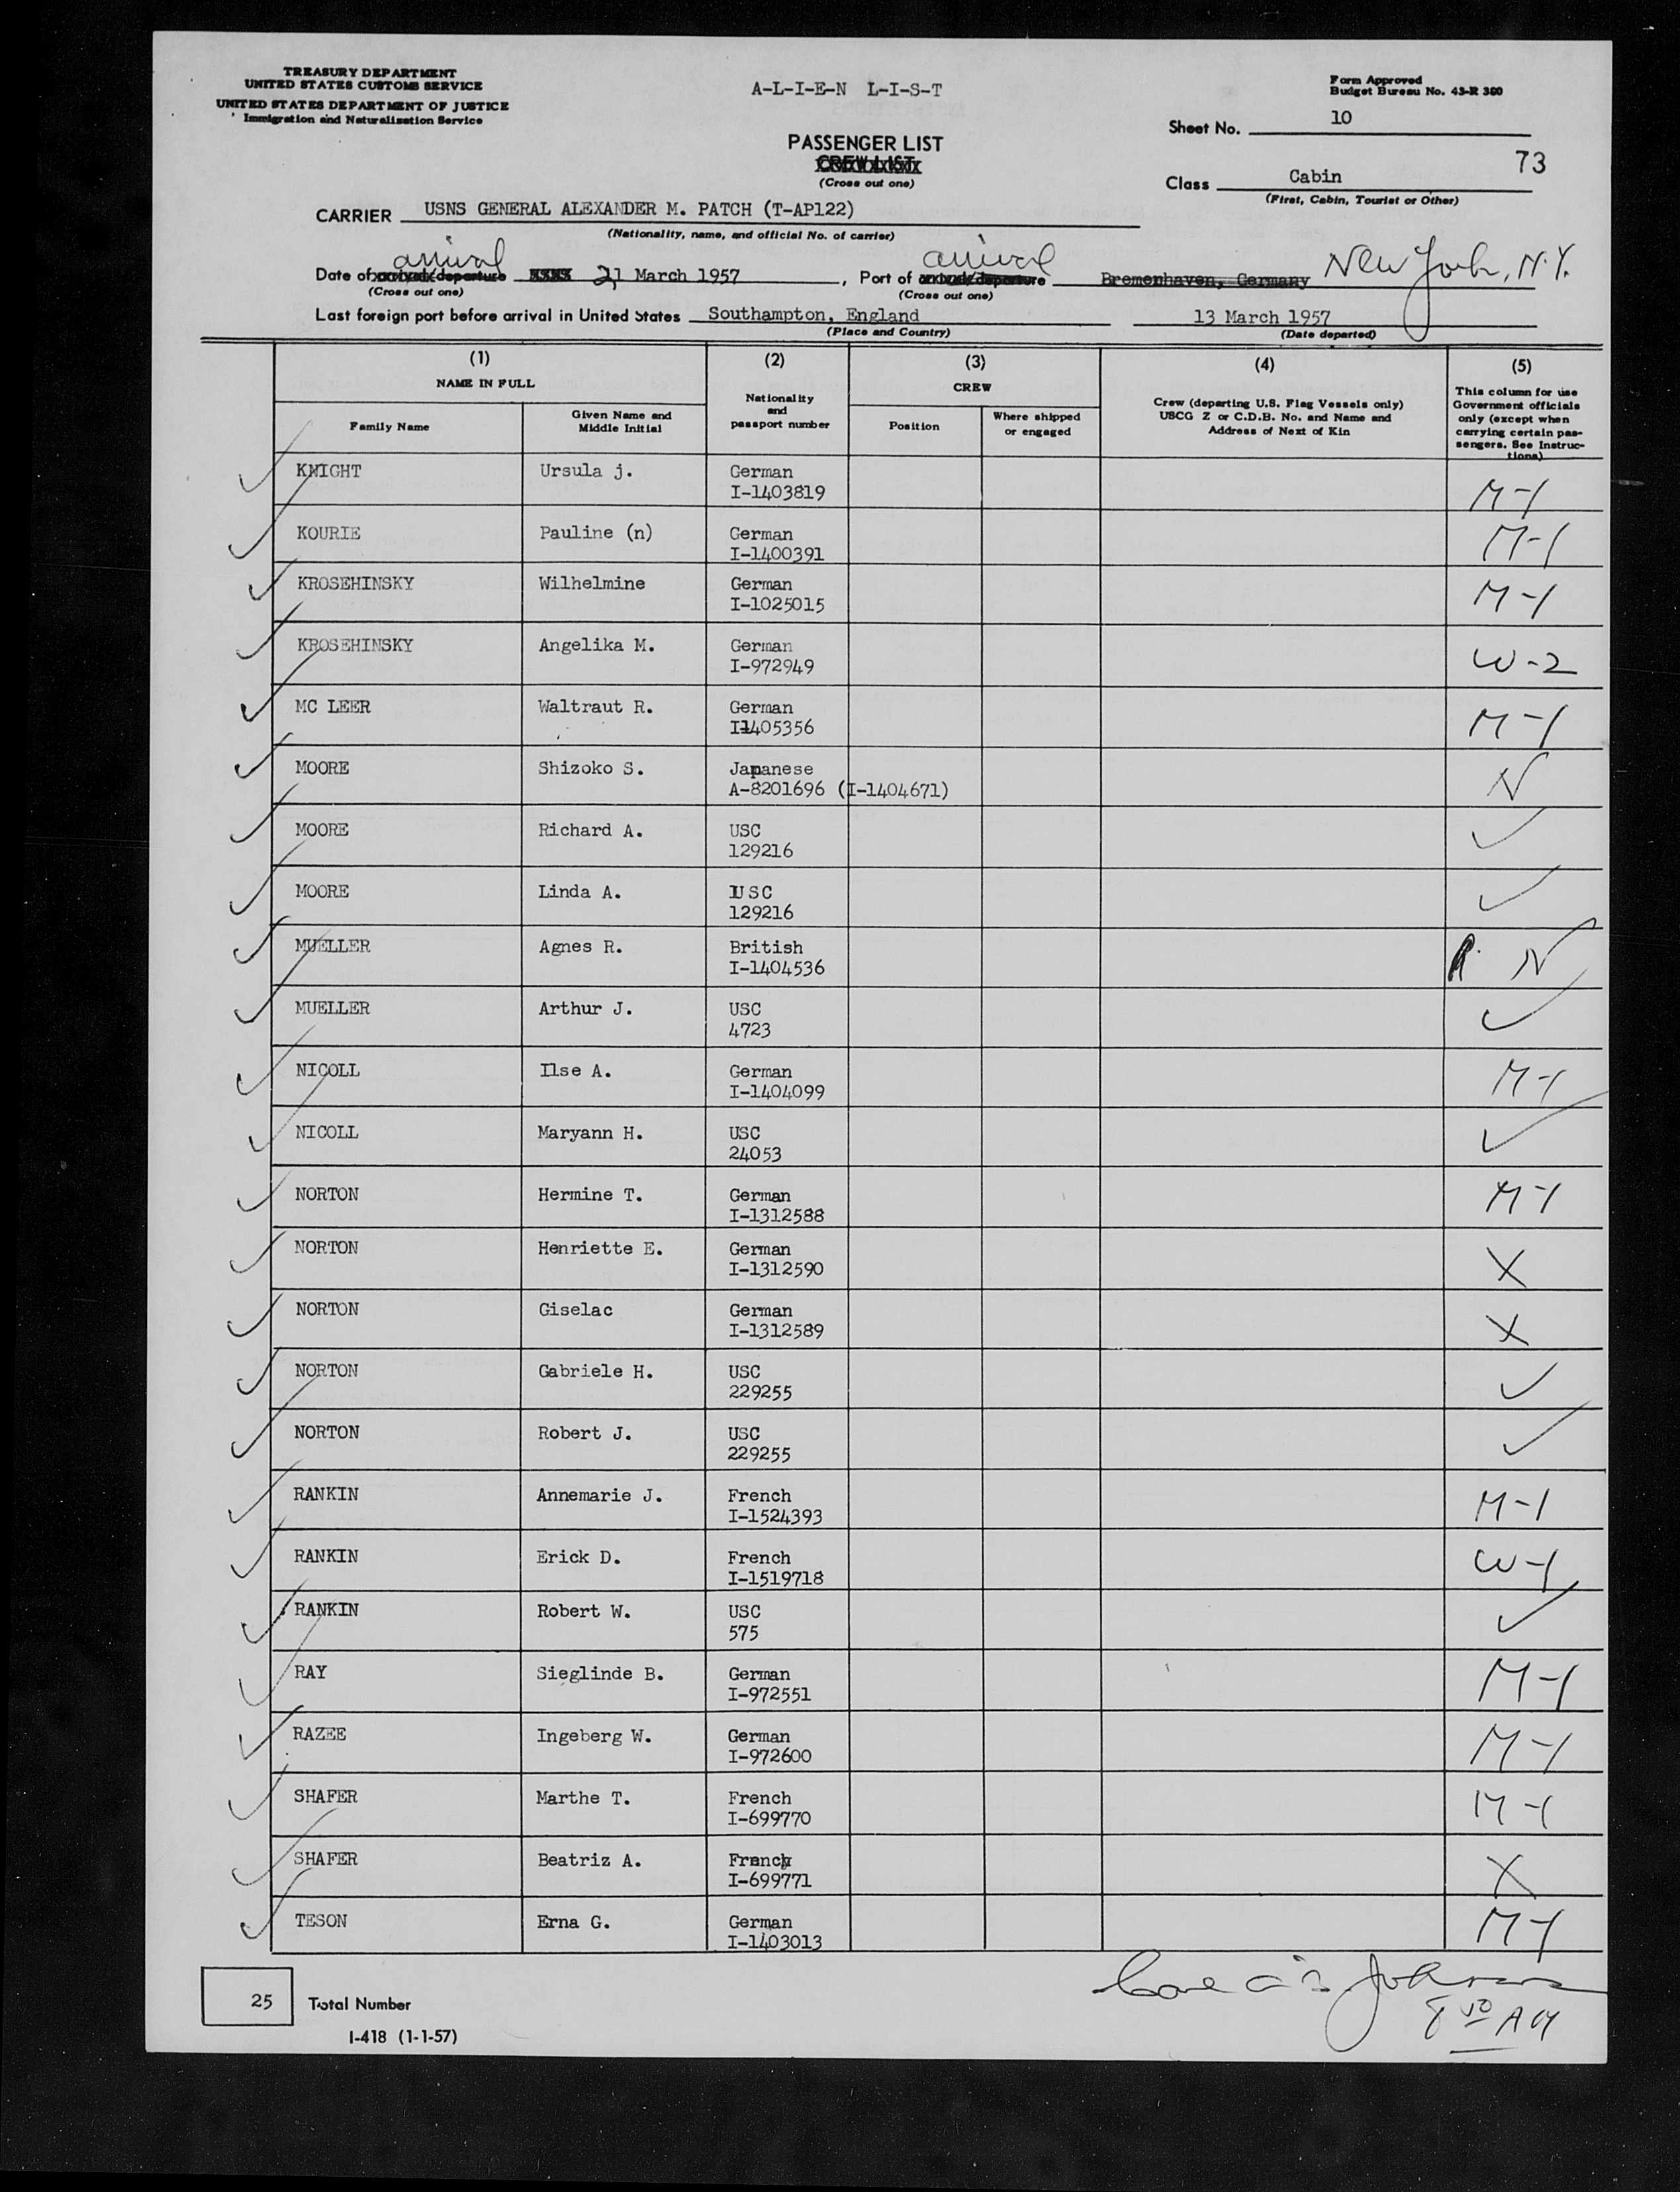 TREASURY DEPARTMENT
UNITED STATES CUSTOMS SERVICE
UNITED STATES DEPARTMENT OF JUSTICE
Immigration and Naturalization Service
A-L-I-E-N L-I-S-T
Form Approved
Budget Bureau No. 43-R 380
Sheet No. 10
PASSENGER LIST
CREW LIST
(Cross out one)
73
Class Cabin
(First, Cabin, Tourist or Other)
CARRIER USNS GENERAL ALEXANDER M. PATCH (T-AP122)
(Nationality, name, and official No. of carrier)
arrival arrival
Date of arrival/departure 21 March 1957, Port of arrival/departure Bremenhaven, Germany New York, N.Y.
(Cross out one) (Cross out one)
Last foreign port before arrival in United States Southampton, England 13 March 1957
(Place and Country) (Date departed)
(1) (2) (3) (4) (5)
NAME IN FULL
Family Name
Given Name and
Middle Initial
Nationality
and
passport number
CREW
Position
Where shipped
or engaged
Crew (departing U.S. Flag Vessels only)
USCG Z or C.D.B. No. and Name and
Address of Next of Kin
This column for use
Government officials
only (except when
carrying certain pas-
sengers. See Instruc-
tions)
KNIGHT Ursula j. German
I-1403819 M-1
KOURIE Pauline (n) German
I-1400391 M-1
KROSEHINSKY Wilhelmine German
I-1025015 M-1
KROSEHINSKY Angelika M. German
I-972949 W-2
MC LEER Waltraut R. German
I-1405356 M-1
MOORE Shizoko S. Japanese
A-8201696 (I-1404671) N
MOORE Richard A. USC
129216
MOORE Linda A. USC
129216
MUELLER Agnes R. British
I-1404536 N
MUELLER Arthur J. USC
4723
NICOLL Ilse A. German
I-1404099 M-1
NICOLL Maryann H. USC
24053
NORTON Hermine T. German
I-1312588 M-1
NORTON Henriette E. German
I-1312590 X
NORTON Giselac German
I-1312589 X
NORTON Gabriele H. USC
229255
NORTON Robert J. USC
229255
RANKIN Annemarie J. French
I-1524393 M-1
RANKIN Erick D. French
I-1519718 W-1
RANKIN Robert W. USC
575
RAY Sieglinde B. German
I-972551 M-1
RAZEE Ingeberg W. German
I-972600 M-1
SHAFER Marthe T. French
I-699770 M-1
SHAFER Beatriz A. French
I-699771 X
TESON Erna G. German
I-1403013 M-1
25 Total Number
Johnson
AM
I-418 (1-1-57)